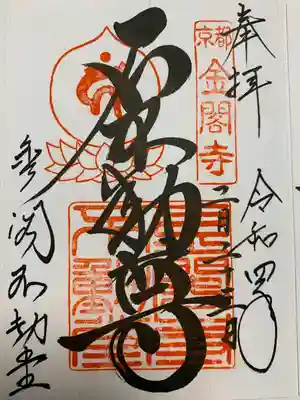 奉拝
京都
金閣寺
令和四年
二月二十三日
石不動尊
金閣不動堂